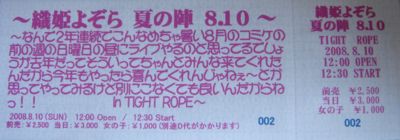 ～織姫よぞら 夏の陣 8.10 ～
～なんで2年連続でこんなめちゃ暑い8月のコミケの
前の週の日曜日の昼にライブやるのと思ってるでしょ
うが去年だってそういってちゃんとみんな来てくれた
んだから今年もやったら喜んでくれんじゃねぇ～とか
思ってやってるけど別にこなくても良いんだからね
っ！！ in TIGHT ROPE～
2008.8.10 (SUN) 12:00 Open / 12:30 Start
前売：¥2,500 当日：¥3,000 女の子：¥1,000 (別途D代がかかります)
002
織姫よぞら
夏の陣 8.10
TIGHT ROPE
2008.8.10
12:00 OPEN
12:30 START
前売 ¥2,500
当日 ¥3,000
女の子 ¥1,000
002